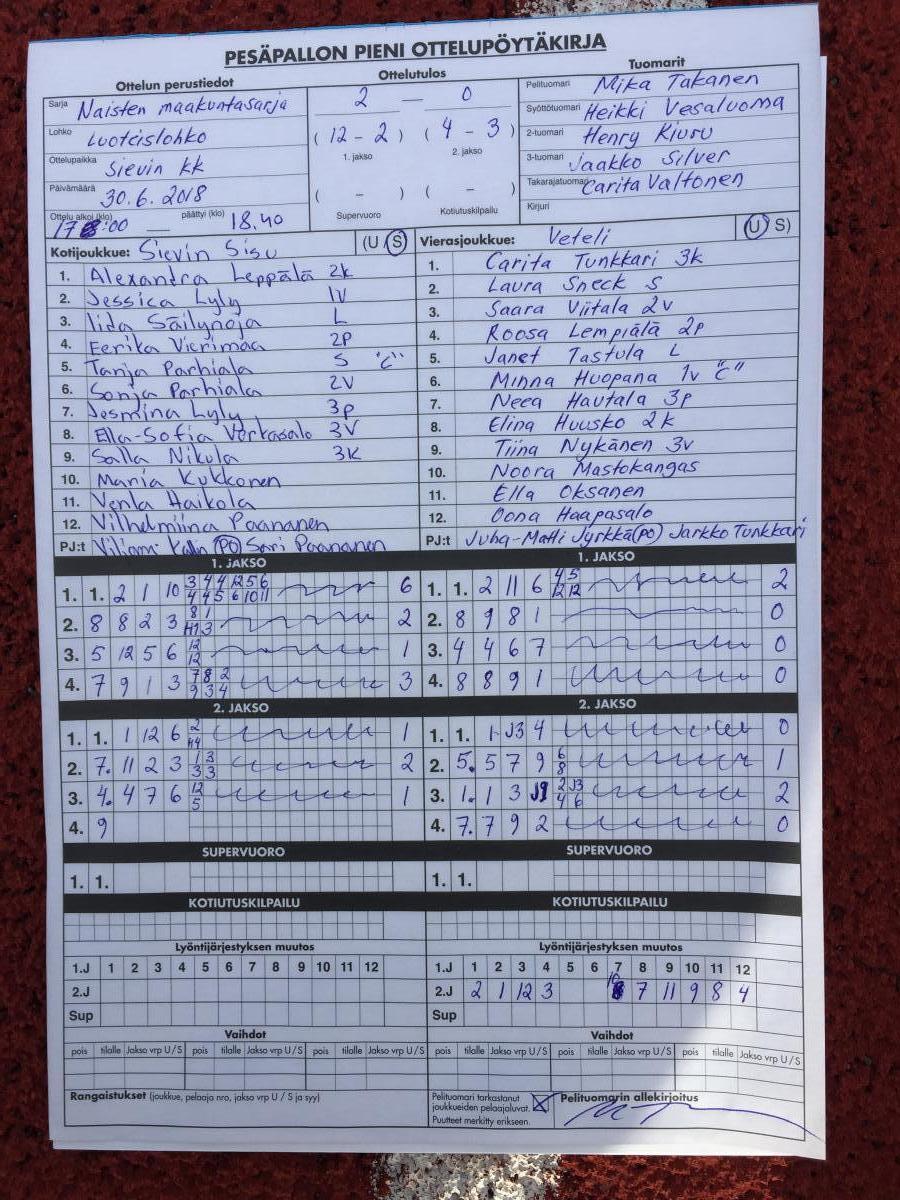 PESÄPALLON PIENI OTTELUPÖYTÄKIRJA
Ottelun perustiedot
Ottelutulos
Tuomarit
Sarja Naisten maakuntasarja
Lohko Luoteislohko
Ottelupaikka Sievin kk
Päivämäärä 30.6.2018
Ottelu alkoi (klo) :00 — päättyi (klo) 18.40
2 — 0
( 12 - 2 ) ( 4 - 3 )
1. jakso 2. jakso
( - ) ( - )
Supervuoro Kotiutuskilpailu
Pelituomari Mika Takanen
Syöttötuomari Heikki Vesaluoma
2-tuomari Henry Kiuru
3-tuomari Jaakko Silver
Takarajatuomari Carita Valtonen
Kirjuri
Kotijoukkue: Sievin Sisu (U / S)
1. Alexandra Leppälä 2k
2. Jessica Lyly 1v
3. Iida Säilynoja L
4. Eerika Vierimaa 2P
5. Tanja Parhiala S "C"
6. Sonja Parhiala 2V
7. Jesmina Lyly 3p
8. Ella-Sofia Verkasalo 3V
9. Salla Nikula 3K
10. Maria Kukkonen
11. Venla Haikola
12. Vilhelmiina Paananen
PJ:t Viljami (PO) Sari Paananen
Vierasjoukkue: Veteli (U / S)
1. Carita Tunkkari 3k
2. Laura Sneck S
3. Saara Viitala 2v
4. Roosa Lempiälä 2p
5. Janet Tastula L
6. Minna Huopana 1v "C"
7. Neea Hautala 3p
8. Elina Huusko 2k
9. Tiina Nykänen 3v
10. Noora Mastokangas
11. Ella Oksanen
12. Oona Haapasalo
PJ:t Juha-Matti Jyrkkä(PO) Jarkko Tunkkari
1. JAKSO
1. 1. 2 1 10 3 4 4 12 5 6 6
4 4 5 6 10 11
2. 8 8 2 3 8 1 2
3. 5 12 5 6 12 1
12
4. 7 9 1 3 7 8 2 3
9 3 4
1. JAKSO
1. 1. 2 11 6 4 5 2
12 12
2. 8 9 8 1 0
3. 4 4 6 7 0
4. 8 8 9 1 0
2. JAKSO
1. 1. 1 12 6 2 1
2. 7. 11 2 3 1 3 2
3 3
3. 4. 4 7 6 12 1
5
4. 9
2. JAKSO
1. 1. 1 J3 4 0
2. 5. 5 7 9 6 1
8
3. 1. 1 3 2 J3 2
4 6
4. 7. 7 9 2 0
SUPERVUORO
1. 1.
SUPERVUORO
1. 1.
KOTIUTUSKILPAILU
KOTIUTUSKILPAILU
Lyöntijärjestyksen muutos
1.J 1 2 3 4 5 6 7 8 9 10 11 12
2.J
Sup
Lyöntijärjestyksen muutos
1.J 1 2 3 4 5 6 7 8 9 10 11 12
2.J 2 1 12 3 10 7 11 9 8 4
Sup
Vaihdot
pois tilalle Jakso vrp U / S pois tilalle Jakso vrp U / S pois tilalle Jakso vrp U / S
Vaihdot
pois tilalle Jakso vrp U / S pois tilalle Jakso vrp U / S pois tilalle Jakso vrp U / S
Rangaistukset (joukkue, pelaaja nro, jakso vrp U / S ja syy)
Pelituomari tarkastanut
joukkueiden pelaajaluvat.
Puutteet merkitty erikseen.
Pelituomarin allekirjoitus